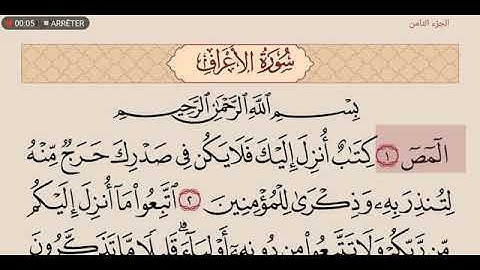 00:05 ARRÊTER الجزء الثامن
سُورَةُ الأَعْرَافِ
بِسْمِ ٱللَّهِ ٱلرَّحْمَٰنِ ٱلرَّحِيمِ
الٓمٓصٓ ١ كِتَٰبٌ أُنزِلَ إِلَيْكَ فَلَا يَكُن فِى صَدْرِكَ حَرَجٌ مِّنْهُ
لِتُنذِرَ بِهِۦ وَذِكْرَىٰ لِلْمُؤْمِنِينَ ٢ ٱتَّبِعُوا۟ مَآ أُنزِلَ إِلَيْكُم
مِّن رَّبِّكُمْ وَلَا تَتَّبِعُوا۟ مِن دُونِهِۦٓ أَوْلِيَآءَ ۗ قَلِيلًا مَّا تَذَكَّرُونَ